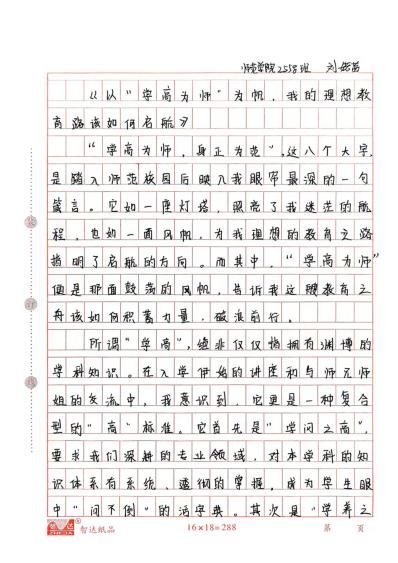 师范学院2558班 刘
《以"学高为师"为帆，我的理想教
育路该如何启航》
"学高为师，身正为范"，这八个大字，
是踏入师范校园后映入我眼帘最深的一句
箴言。它如一座灯塔，照亮了我迷茫的航
程，也如一面风帆，为我理想的教育之路
指明了启航的方向。而其中，"学高为师"
便是那面鼓荡的风帆，告诉我这艘教育之
舟该如何积蓄力量，破浪前行。
所谓"学高"，绝非仅仅指拥有渊博的
学科知识。在入学伊始的讲座和与师兄师
姐的交流中，我意识到，它更是一种复合
型的"高"标准。它首先是"学问之高"，
要求我们深耕的专业领域，对本学科的知
识体系有系统、透彻的掌握，成为学生眼
中"问不倒"的活字典。其次是"学养之
装
订
线
智达纸品
16×18=288
第 页